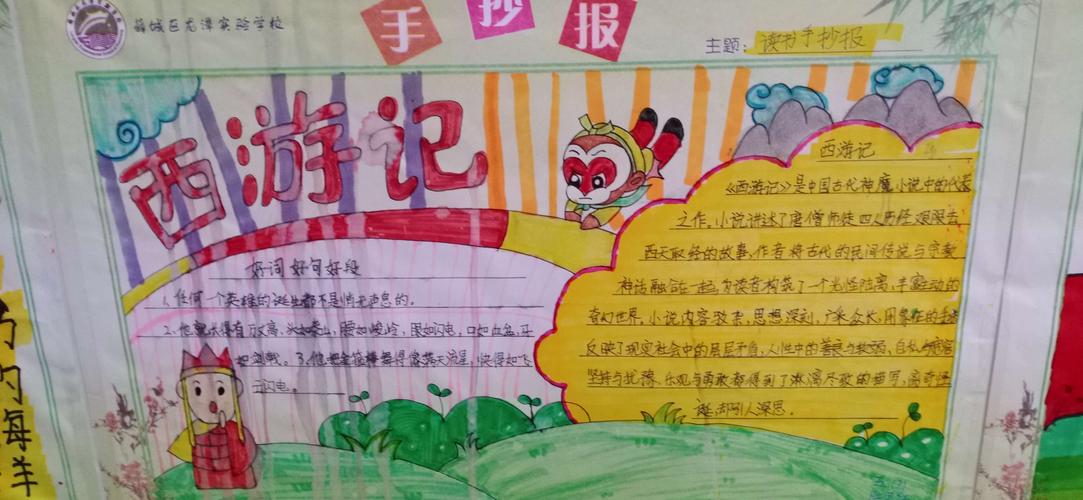 薛城区龙潭实验学校
手抄报
主题:读书手抄报
西游记
好词 好句 好段
1、任何一个英雄的诞生都不是悄无声息的。
2、他就长得有万丈高,头如泰山,腰如峻岭,眼如闪电,口如血盆,牙
如剑戟。3、他把金箍棒舞得像满天流星,快得如飞
云闪电。
西游记
《西游记》是中国古代神魔小说中的代表
之作。小说讲述了唐僧师徒四人历经艰险去
西天取经的故事,作者将古代的民间传说与宗教
神话融合在一起,为读者构筑了一个光怪陆离,丰富生动的
奇幻世界。小说内容驳杂,思想深刻,广采众长,用象征的手法
反映了现实社会中的层层矛盾,人性中的善良与软弱,自私与宽容
坚持与犹豫,乐观与勇敢都得到了淋漓尽致的描写,离奇怪
诞,却引人深思。
的海洋